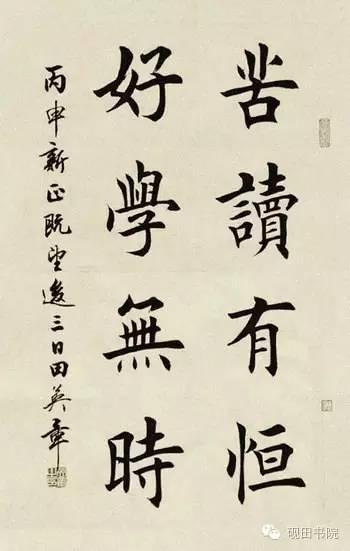 苦讀有恒
好學無時
丙申新正既望後三日田英章
砚田书院